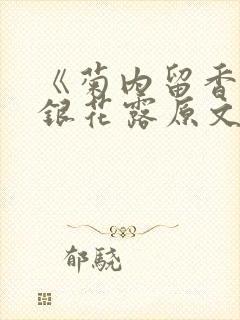 《菊内留香
银花露原文
郁驍